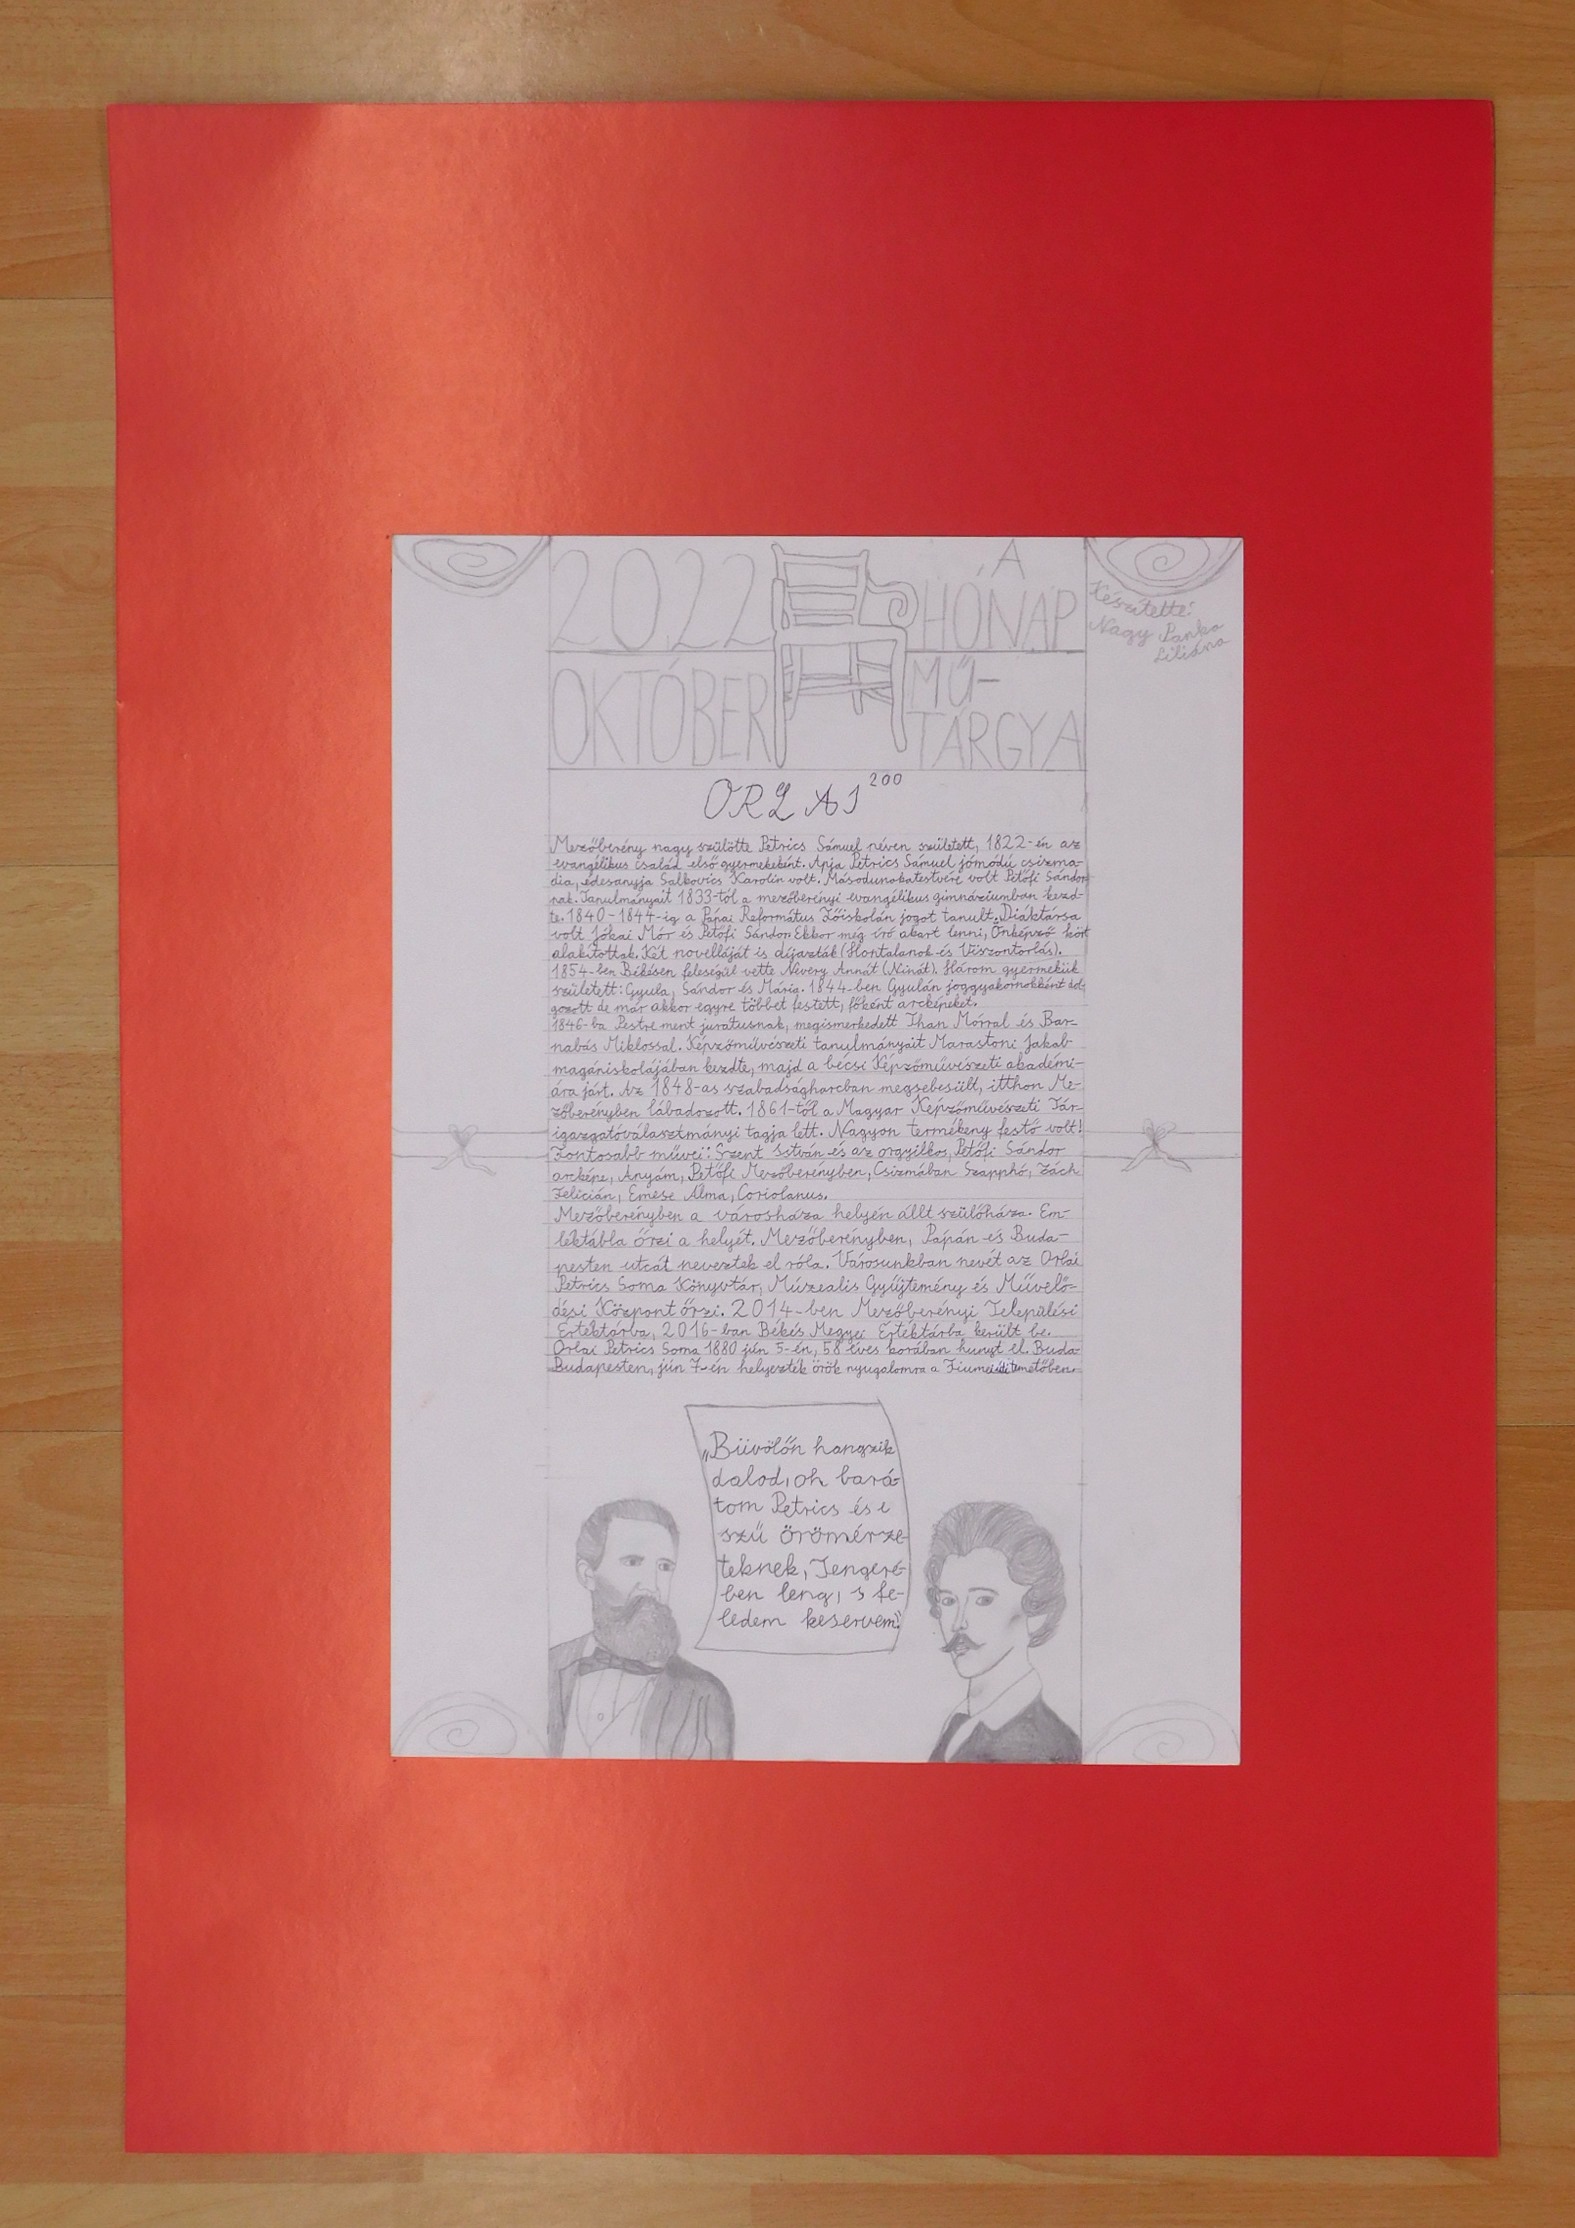 2022
OKTÓBER
A
HÓNAP
MŰ-
TÁRGYA
Készítette:
Nagy Panka
Liliána
ORLAI 200
Mezőberény nagy szülötte Petrics Sámuel néven született, 1822-én az
evangélikus család első gyermekeként. Apja Petrics Sámuel jómódú csizma-
dia, édesanyja Salkovics Karolin volt. Másodunokatestvére volt Petőfi Sándor-
nak. Tanulmányait 1833-tól a mezőberényi evangélikus gimnáziumban kezd-
te. 1840-1844-ig a Pápai Református Főiskolán jogot tanult. Diáktársa
volt Jókai Mór és Petőfi Sándor. Ekkor még író akart lenni, Önképző kört
alakítottak. Két novelláját is díjazták (Hontalanok és Viszontorlás).
1854-ben Békésen feleségül vette Névery Annát (Ninát). Három gyermekük
született: Gyula, Sándor és Mária. 1844-ben Gyulán joggyakornokként dol-
gozott de már akkor egyre többet festett, főként arcképeket.
1846-ba Pestre ment juratusnak, megismerkedett Than Mórral és Bar-
nabás Miklossal. Képzőművészeti tanulmányait Marastoni Jakab
magániskolájában kezdte, majd a bécsi Képzőművészeti akadémi-
ára járt. Az 1848-as szabadságharcban megsebesült, itthon Me-
zőberényben lábadozott. 1861-től a Magyar Képzőművészeti Tár-
igazgatóválasztmányi tagja lett. Nagyon termékeny festő volt!
Fontosabb művei: Szent István és az orgyilkos, Petőfi Sándor
arcképe, Anyám, Petőfi Mezőberényben, Csizmában Szapphó, Zách
Felicián, Emese Álma, Coriolanus.
Mezőberényben a városháza helyén állt szülőháza. Em-
léktábla őrzi a helyét. Mezőberényben, Pápán és Buda-
pesten utcát neveztek el róla. Városunkban nevét az Orlai
Petrics Soma Könyvtár, Múzealis Gyűjtemény és Művelő-
dési Központ őrzi. 2014-ben Mezőberényi Települési
Értéktárba, 2016-ban Békés Megyei Értéktárba került be.
Orlai Petrics Soma 1880 jún 5-én, 58 éves korában hunyt el. Buda-
Budapesten, jún 7-én helyezték örök nyugalomra a Fiumei úti temetőben.
„Büvölőn hangzik
dalod, oh bará-
tom Petrics és e
szű örömérze-
teknek, Tengeré-
ben leng, s fe-
ledem keservem."